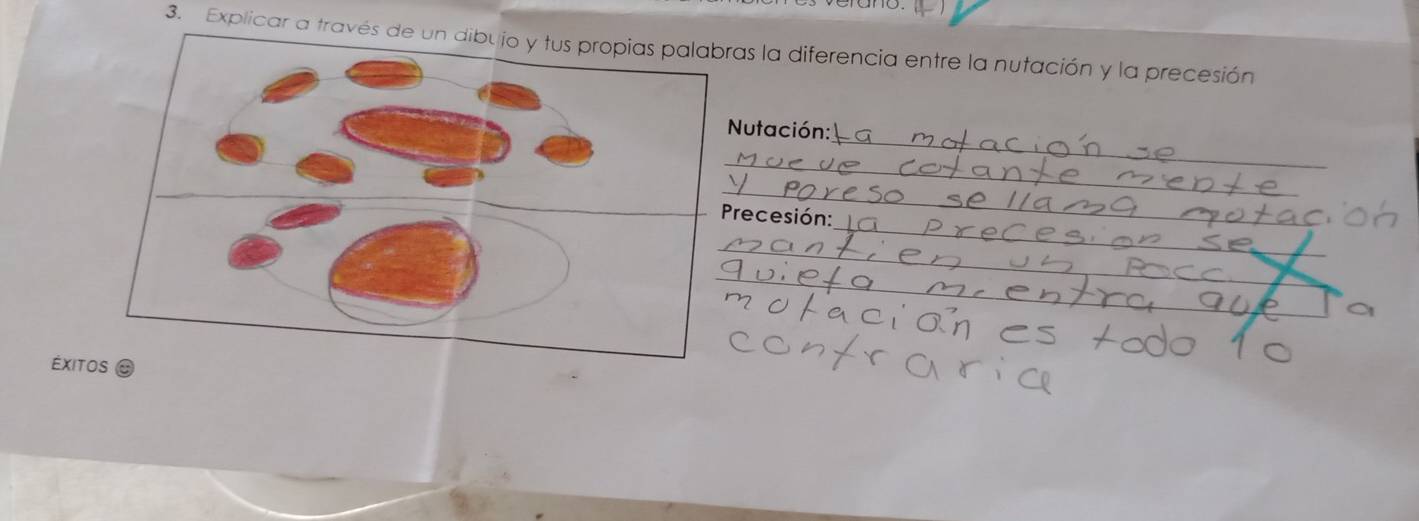 verano. (F)
3. Explicar a través de un dibujo y tus propias palabras la diferencia entre la nutación y la precesión
Nutación: La motación se
mueve cotante mente
y poreso se llama motación
Precesión: la precesion se
mantien un poco
quieta mientra que la
motación es todo lo
contraria
ÉXITOS ☺